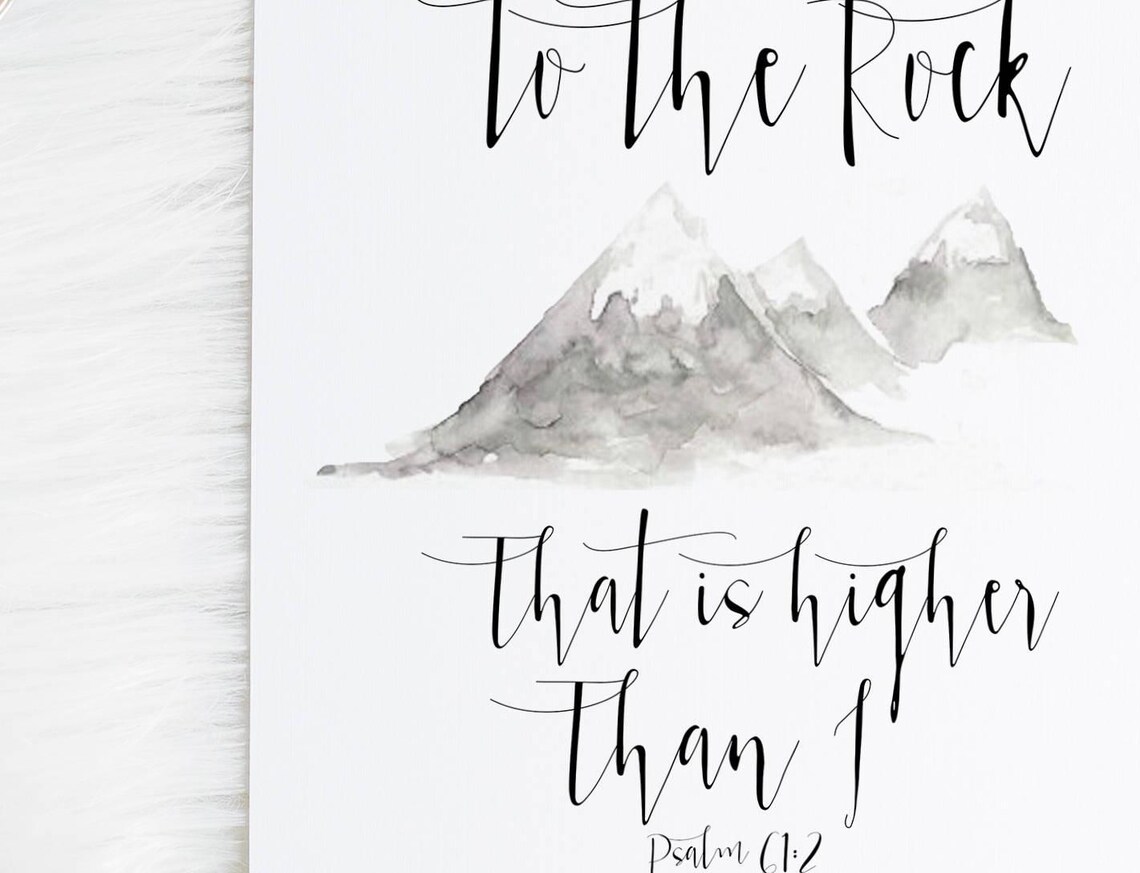 To The Rock
That is higher
Than I
Psalm 61:2